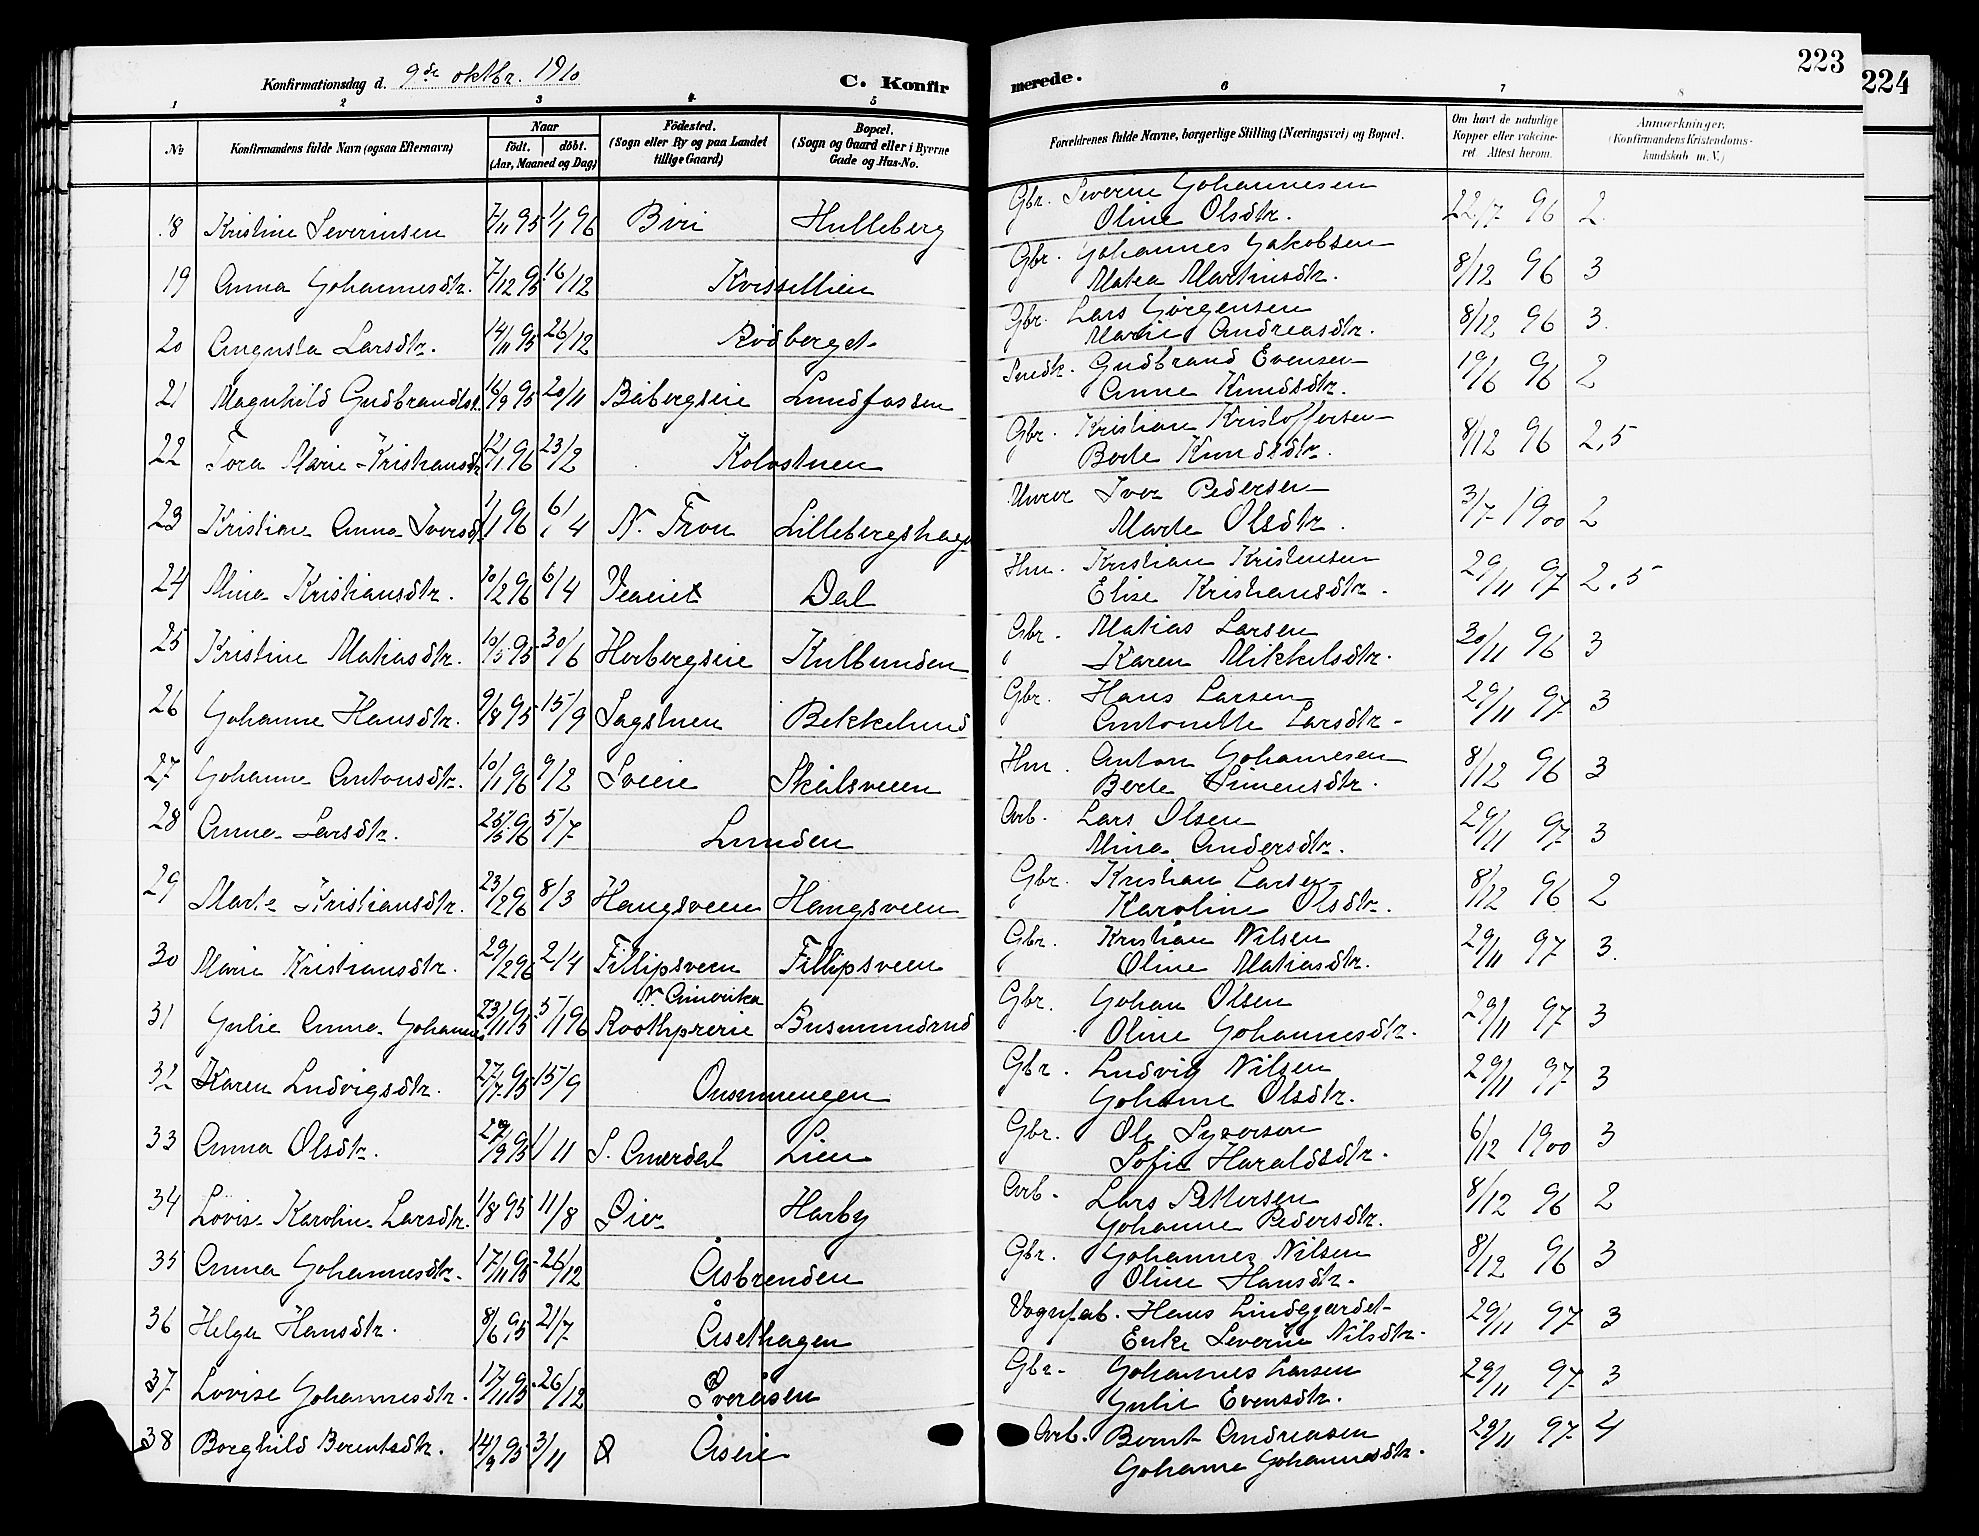 223
224
Konfirmationsdag d. 9de oktbr. 1910
C. Konfirmerede.
1 2 3 4 5 6 7 8
No
Konfirmandens fulde Navn (ogsaa Efternavn)
Naar
født. døbt.
(Aar, Maaned og Dag)
Födested.
(Sogn eller By og paa Landet
tillige Gaard)
Bopæl.
(Sogn og Gaard eller i Byerne
Gade og Hus-No.
Forældrenes fulde Navne, borgerlige Stilling (Næringsvei) og Bopæl.
Om havt de naturlige
Kopper eller vakcine-
ret Attest herom.
Anmærkninger.
(Konfirmandens Kristendoms-
kundskab m. V.)
18 Kristine Severinsen 7/11 95 1/1 96 Biri Hulleberg Gbr. Severin Johannesen 22/7 96 2.
Oline Olsdtr.
19 Anna Johannesdtr. 7/12 95 16/12 Kvissellien Gbr. Johannes Jakobsen 8/12 96 3
Matea Martinsdtr.
20 Augusta Larsdtr. 14/11 95 26/12 Rødberget Gbr. Lars Jørgensen 8/12 96 3.
Marie Andreasdtr.
21 Magnhild Gudbrandsd. 16/9 95 20/11 Båbergseie Lundfossen Snedk. Gudbrand Evensen 19/6 96 2
Anne Knudsdtr.
22 Tora Marie Kristiansdtr 12/1 96 23/2 Kolostuen Gbr. Kristian Kristoffersen 8/12 96 2,5
Berte Knudsdtr.
23 Kristine Anna Iversdt. 1/1 96 6/4 N. Fron Lillebergshage Murer Iver Pedersen 3/7 1900 2
Marte Olsdtr.
24 Mina Kristiansdtr. 10/2 96 6/4 Dal Hm. Kristian Kristensen 29/11 97 2,5
Elise Kristiansdtr.
25 Kristine Matiasdtr. 10/5 95 30/6 Horbergseie Kulbunden Gbr. Matias Larsen 30/11 96 3
Karen Mikkelsdtr.
26 Johanne Hansdtr. 9/8 95 15/9 Sagstuen Bekkelund Gbr. Hans Larsen 29/11 97 3
Antonette Larsdtr.
27 Johanne Antonsdtr. 10/1 96 9/2 Sveie Skålsveen Hm. Anton Johannesen 8/12 96 3
Berte Simensdtr.
28 Anna Larsdtr. 25/5 96 5/7 Lunden Arb. Lars Olsen 29/11 97 3
Mina Andersdtr.
29 Marte Kristiansdtr. 23/2 96 8/3 Haugsveen Haugsveen Gbr. Kristian Larsen 8/12 96 2
Karoline Olsdtr.
30 Marie Kristiansdtr. 29/2 96 2/4 Fillipsveen Fillipsveen Gbr. Kristian Nilsen 29/11 97 3.
Oline Matiasdtr.
N. Amerika
31 Julie Anna Johannes 23/11 95 5/11 96 Roothprerie Busmundrud Gbr. Johan Olsen 29/11 97 3
Oline Johannesdtr.
32 Karen Ludvigsdtr. 27/7 95 15/9 Onsumengen Gbr. Ludvig Nilsen 29/11 97 3
Johanne Olsdtr.
33 Anna Olsdtr. 1/11 S. Aurdal Lien Gbr. Ole Syverson 6/12 1900 3
Sofie Haraldsdtr.
34 Lovise Karoline Larsdtr. 1/8 95 11/8 Øier Harby Arb. Lars Pettersen 8/12 96 2
Johanne Pedersdtr.
35 Anna Johannesdtr. 17/11 95 26/12 Åsbrenden Gbr. Johannes Nilsen 8/12 96 3
Oline Hansdtr.
36 Helga Hansdtr. 8/6 95 21/7 Åsethagen Vognfab. Hans Lindgjordet 29/11 97 3
Enke Severine Nilsdtr.
37 Lovise Johannesdtr. 17/11 95 26/12 Sveråsen Gbr. Johannes Larsen 29/11 97 3
Julie Evensdtr.
38 Borghild Berentsdtr. 14/9 95 3/11 Åseie Arb. Bernt Andreasen 29/11 97 4
Johanne Johannesdtr.